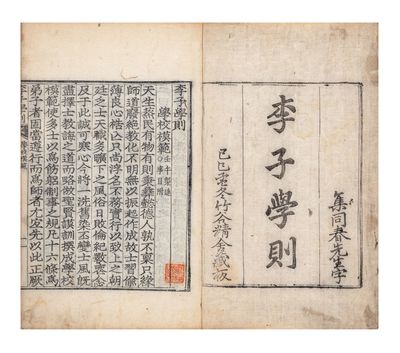 集同春先生字
李子學則
己巳冬竹谷精舍藏板
李子學則
學校模範 壬午製進 事目附
天生蒸民有物有則秉彝懿德人孰不稟只緣
師道廢絶教化不明無以振起作成故士習偷
薄良心梏亡只尚浮名不務實行以致上之朝
廷乏士天職多曠下之風俗日敗倫紀斁喪念
及于此誠可寒心今將一洗舊染丕變士風既
盡擇士教誨之道而略倣聖賢謨訓撰成學校
模範使多士以爲飭躬制事之規凡十六條爲
弟子者固當遵行而爲師者尤宜先以此正厥